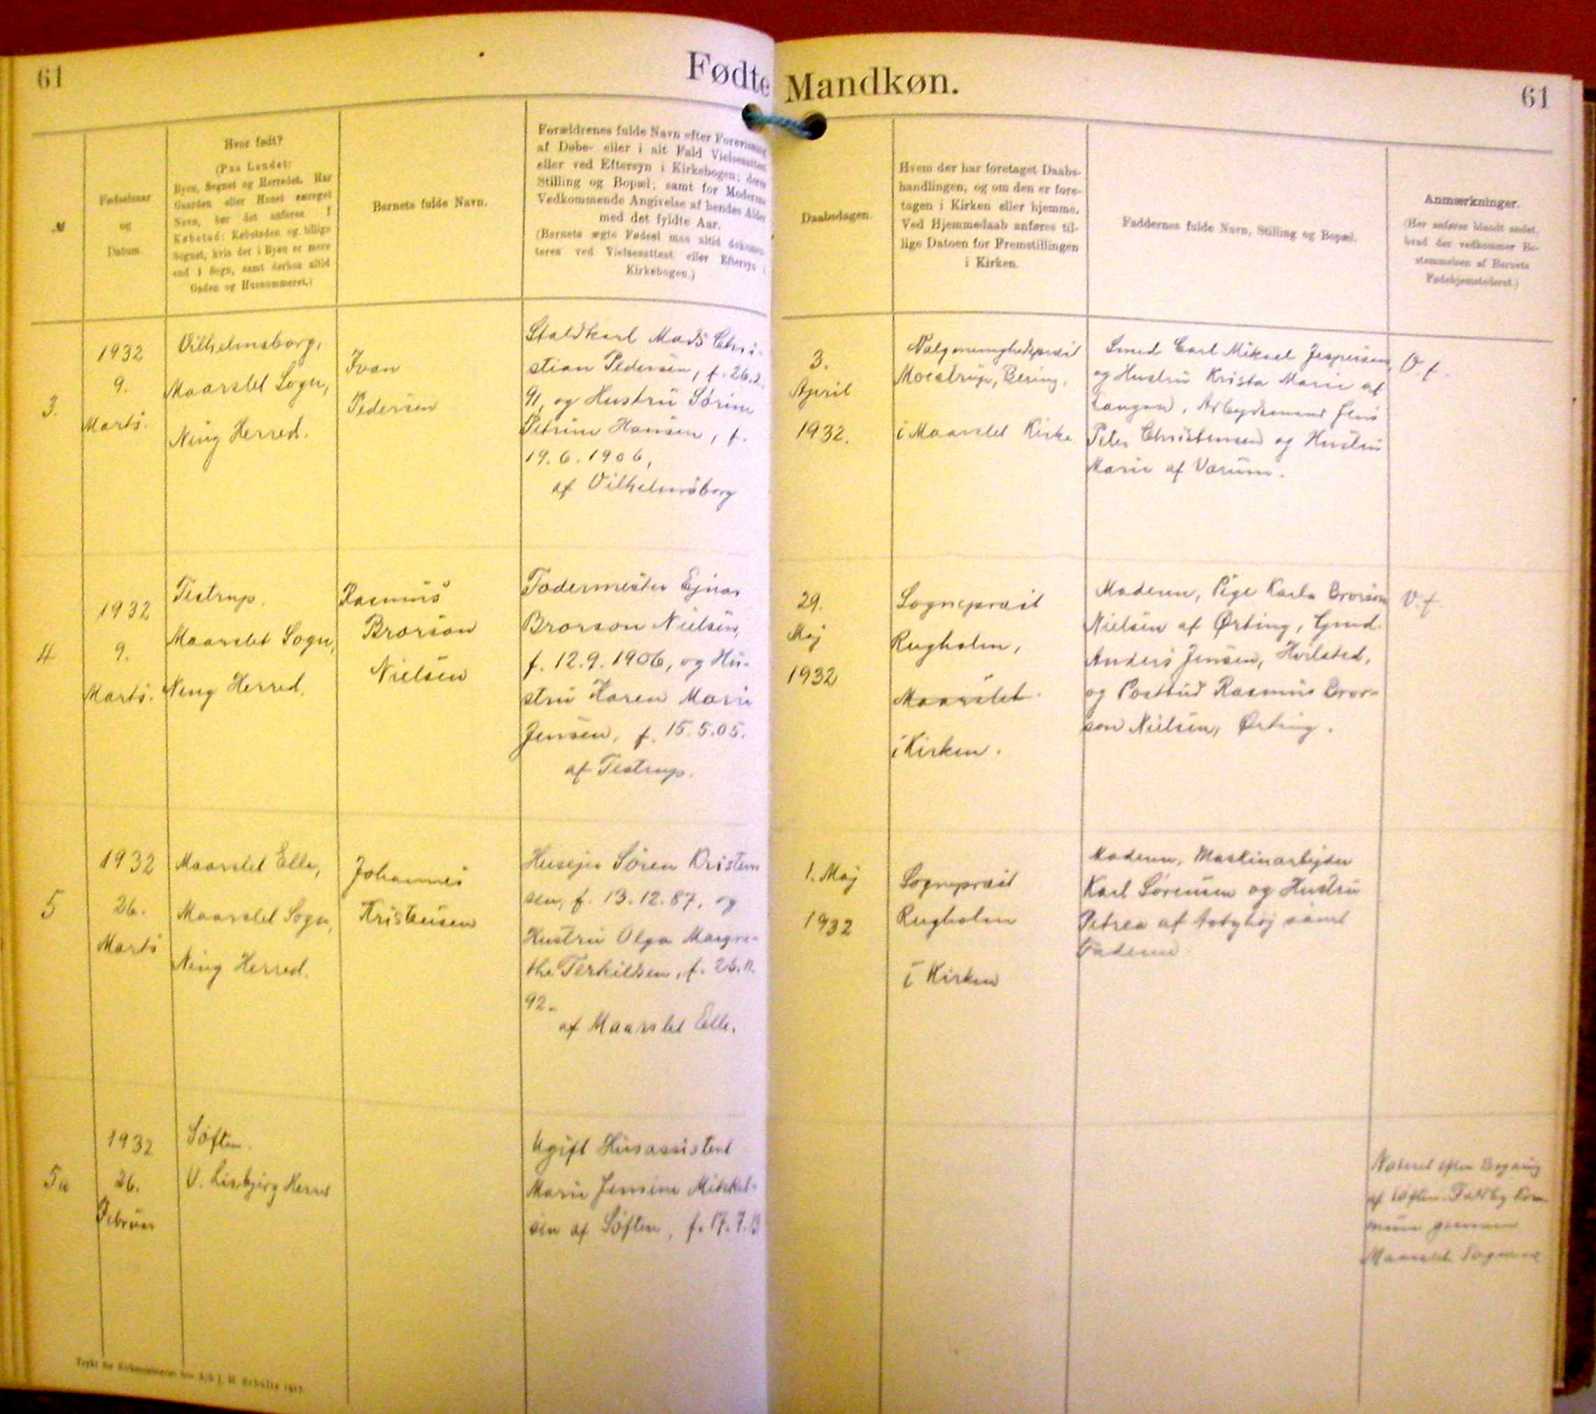 61
Fødte
Mandkøn.
61
№
Fødselsaar
og
Datum.
Hvor født?
(Paa Landet:
Byen, Sognet og Herredet. Har
Gaarden eller Huset særeget
Navn, bør det anføres. I
Købstad: Købstaden og tillige
Sognet, hvis der i Byen er mere
end 1 Sogn, samt derhos altid
Gaden og Husnummeret.)
Barnets fulde Navn.
Forældrenes fulde Navn efter Forevisning
af Døbe- eller i alt Fald Vielsesattest
eller ved Eftersyn i Kirkebogen; deres
Stilling og Bopæl; samt for Moderens
Vedkommende Angivelse af hendes Alder
med det fyldte Aar.
(Barnets ægte Fødsel maa altid dokumen-
teres ved Vielsesattest eller Eftersyn i
Kirkebogen.)
Daabsdagen.
Hvem der har foretaget Daabs-
handlingen, og om den er fore-
tagen i Kirken eller hjemme.
Ved Hjemmedaab anføres til-
lige Datoen for Fremstillingen
i Kirken.
Faddernes fulde Navn, Stilling og Bopæl.
Anmærkninger.
(Her anføres blandt andet,
hvad der vedkommer Be-
stemmelsen af Barnets
Fødehjemstedsret.)
3.
1932
9.
Marts.
Vilhelmsborg,
Maarslet Sogn,
Ning Herred.
Ivan
Pedersen
Staldkarl Mads Chri-
stian Pedersen, f. 26.2.
91, og Hustru Sørine
Petrine Hansen, f.
19.6.1906,
af Vilhelmsborg
3.
April
1932.
Valgmenighedspræst
Moestrup, Bering,
i Maarslet Kirke
Smed Carl Mikael Jespersen
og Hustru Krista Marie af
Langaa, Arbejdsmand Jens
Peter Christensen og Hustru
Marie af Værum.
V f.
4
1932
9.
Marts.
Testrup.
Maarslet Sogn,
Ning Herred.
Rasmus
Brorson
Nielsen
Fodermester Ejnar
Brorson Nielsen,
f. 12.9.1906, og Hu-
stru Karen Marie
Jensen, f. 15.5.05.
af Testrup.
29.
Maj
1932
Sognepræst
Rugholm,
Maarslet.
i Kirken.
Moderen, Pige Karla Brorson
Nielsen af Ørting, Gmd.
Anders Jensen, Hvilsted,
og Postbud Rasmus Bror-
son Nielsen, Ørting.
V. f
5
1932
26.
Marts
Maarslet Elle,
Maarslet Sogn,
Ning Herred.
Johannes
Kristensen
Husejer Søren Kristen-
sen, f. 13.12.87, og
Hustru Olga Magre-
the Terkildsen, f. 26.11.
92.
af Maarslet Elle.
1. Maj
1932
Sognepræst
Rugholm
i Kirken
Moderen, Maskinarbejder
Karl Sørensen og Hustru
Petrea af Aabyhøj samt
Faderen
5a
1932
26.
Februar
Søften.
V. Lisbjerg Herred
Ugift Husassistent
Marie Jensine Mikkel-
sen af Søften, f. 17.7.13
Noteret efter Begæring
af Søften-Foldby Kom-
mune gennem
Maarslet Sogneraad
Trykt for Kirkeministeriet hos A/S J. H. Schultz 1917.